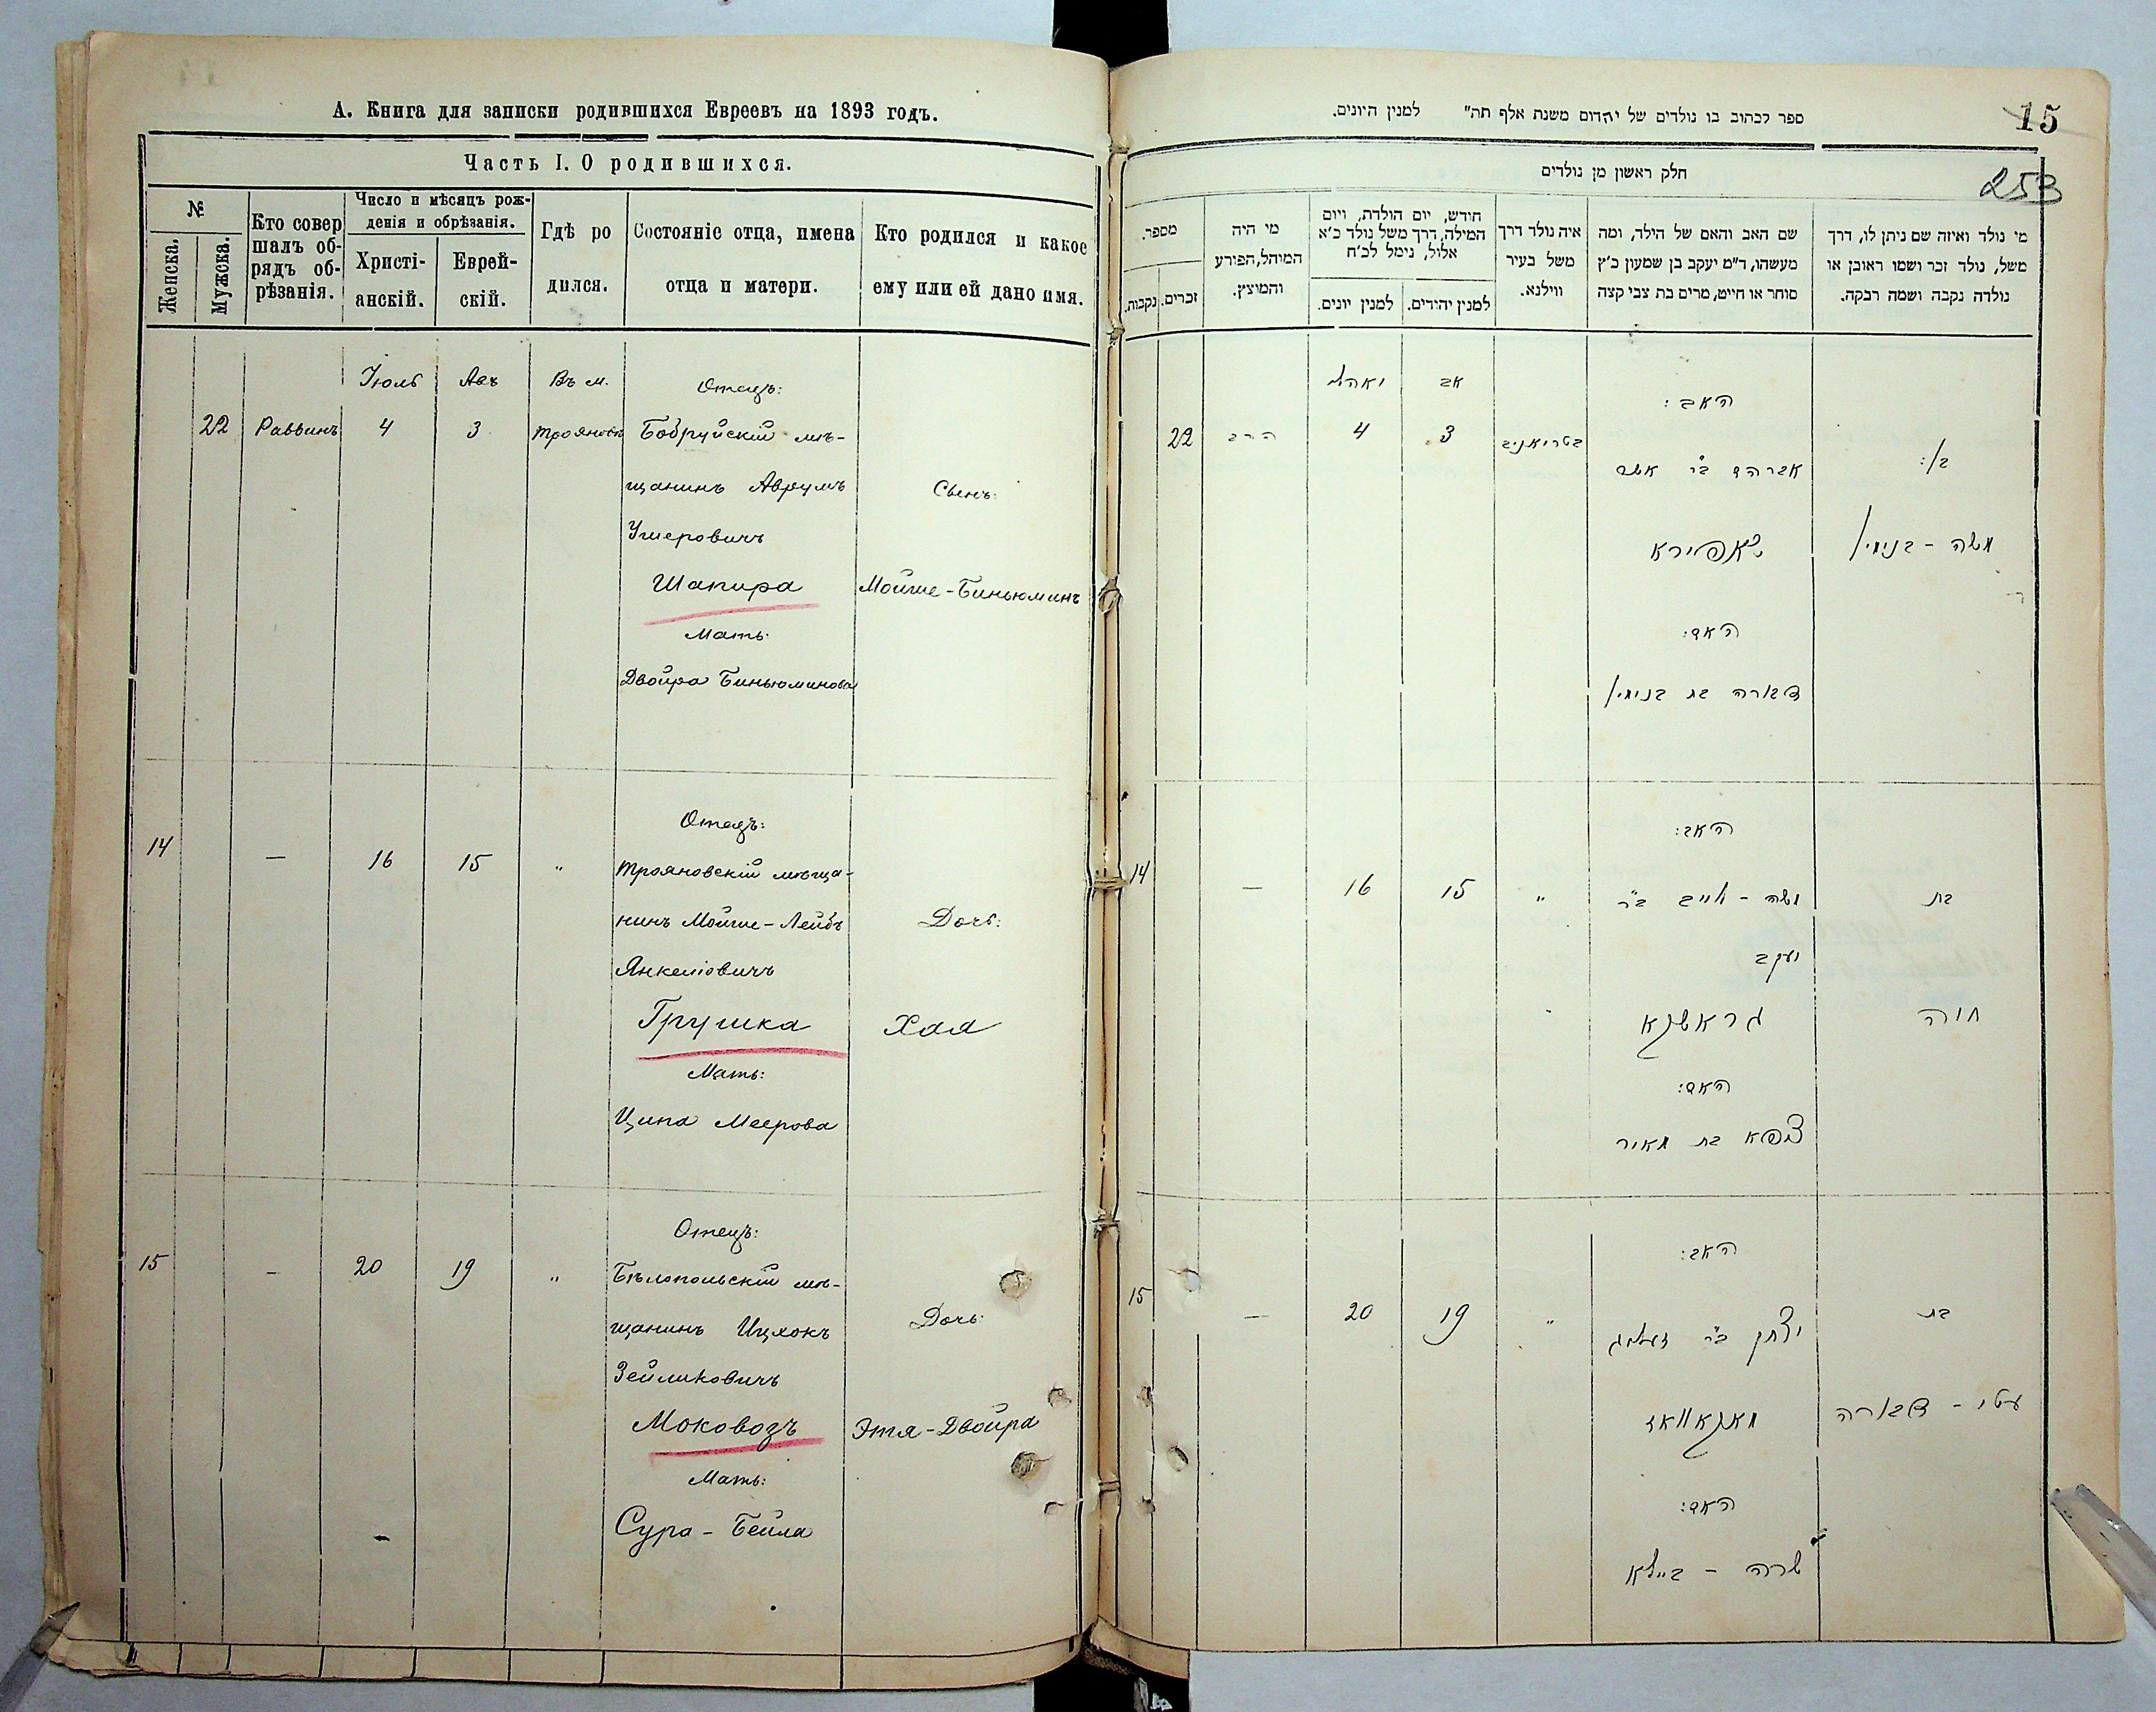 А. Книга для записки родившихся Евреевъ на 1893 годъ.
Часть I. О родившихся.
№
Женска.
Мужска.
Кто совер
шалъ об-
рядъ об-
рѣзанія.
Число и мѣсяцъ рож-
денія и обрѣзанія.
Христі-
анскій.
Еврей-
скій.
Гдѣ ро
дился.
Состояніе отца, имена
отца и матери.
Кто родился и какое
ему или ей дано имя.
Іюль Авъ Въ м. Отецъ:
22 Раввинъ 4 3 Трояновѣ Бобруйскій мѣ-
щанинъ Аврумъ Сынъ:
Ушеровичъ
Шапира Мойше-Биньюминъ
Мать:
Двойра Биньюминова
Отецъ:
14 — 16 15 " Трояновскій мѣща-
нинъ Мойше-Лейбъ Дочь:
Янкелiовичъ
Грушка Хая
Мать:
Ципа Меерова
Отецъ:
15 — 20 19 " Бѣлопольскій мѣ-
щанинъ Ицхокъ Дочь:
Зейликовичъ
Моковозъ Этя-Двойра
Мать:
Сура-Бейла
15
253
ספר לכתוב בו נולדים של יהדום משנת אלף תה״ למנין היונים.
חלק ראשון מן נולדים
מי נולד ואיזה שם ניתן לו, דרך
משל, נולד זכר ושמו ראובן או
נולדה נקבה ושמה רבקה.
שם האב והאם של הילד, ומה
מעשהו, ד״מ יעקב בן שמעון כ״ץ
סוחר או חייט, מרים בת צבי קצה
איה נולד דרך
משל בעיר
ווילנא.
חודש, יום הולדת, ויום
המילה, דרך משל נולד כ׳א
אלול, נימל לכ׳ח
למנין יהידים.
למנין יונים.
מי היה
המוהל, הפורע
והמוצץ.
מספר.
זכרים.
נקבות.
אב
האב:
בן:
22 הרב 4 3 בטריאניב
אברהם ב״ר אשר
שאפירא
משה - בנימין
האם:
דבורה בת בנימין
האב:
14 — 16 15 "
משה - לייב ב״ר
בת
יעקב
גראשקא
חיה
האם:
ציפא בת מאיר
האב:
15 — 20 19 "
יצחק ב״ר זעליג
בת
מאקאוואז
עטי - דבורה
האם:
שרה - ביילא